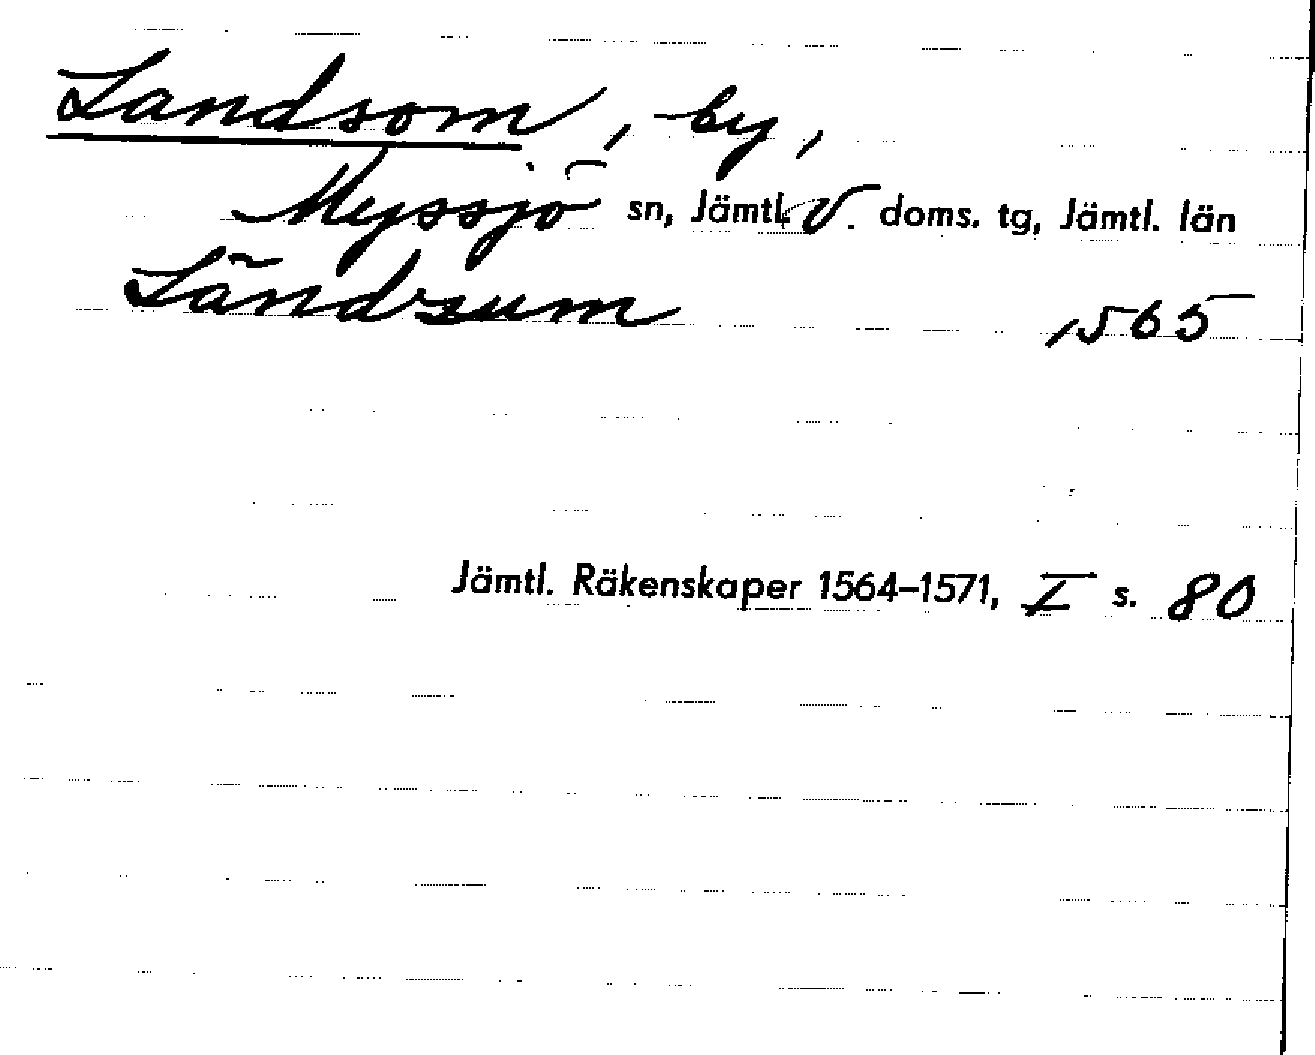 Landsom, by,
Myssjö sn, Jämtl. V. doms. tg, Jämtl. län
Ländzum 1565
Jämtl. Räkenskaper 1564–1571, I s. 80